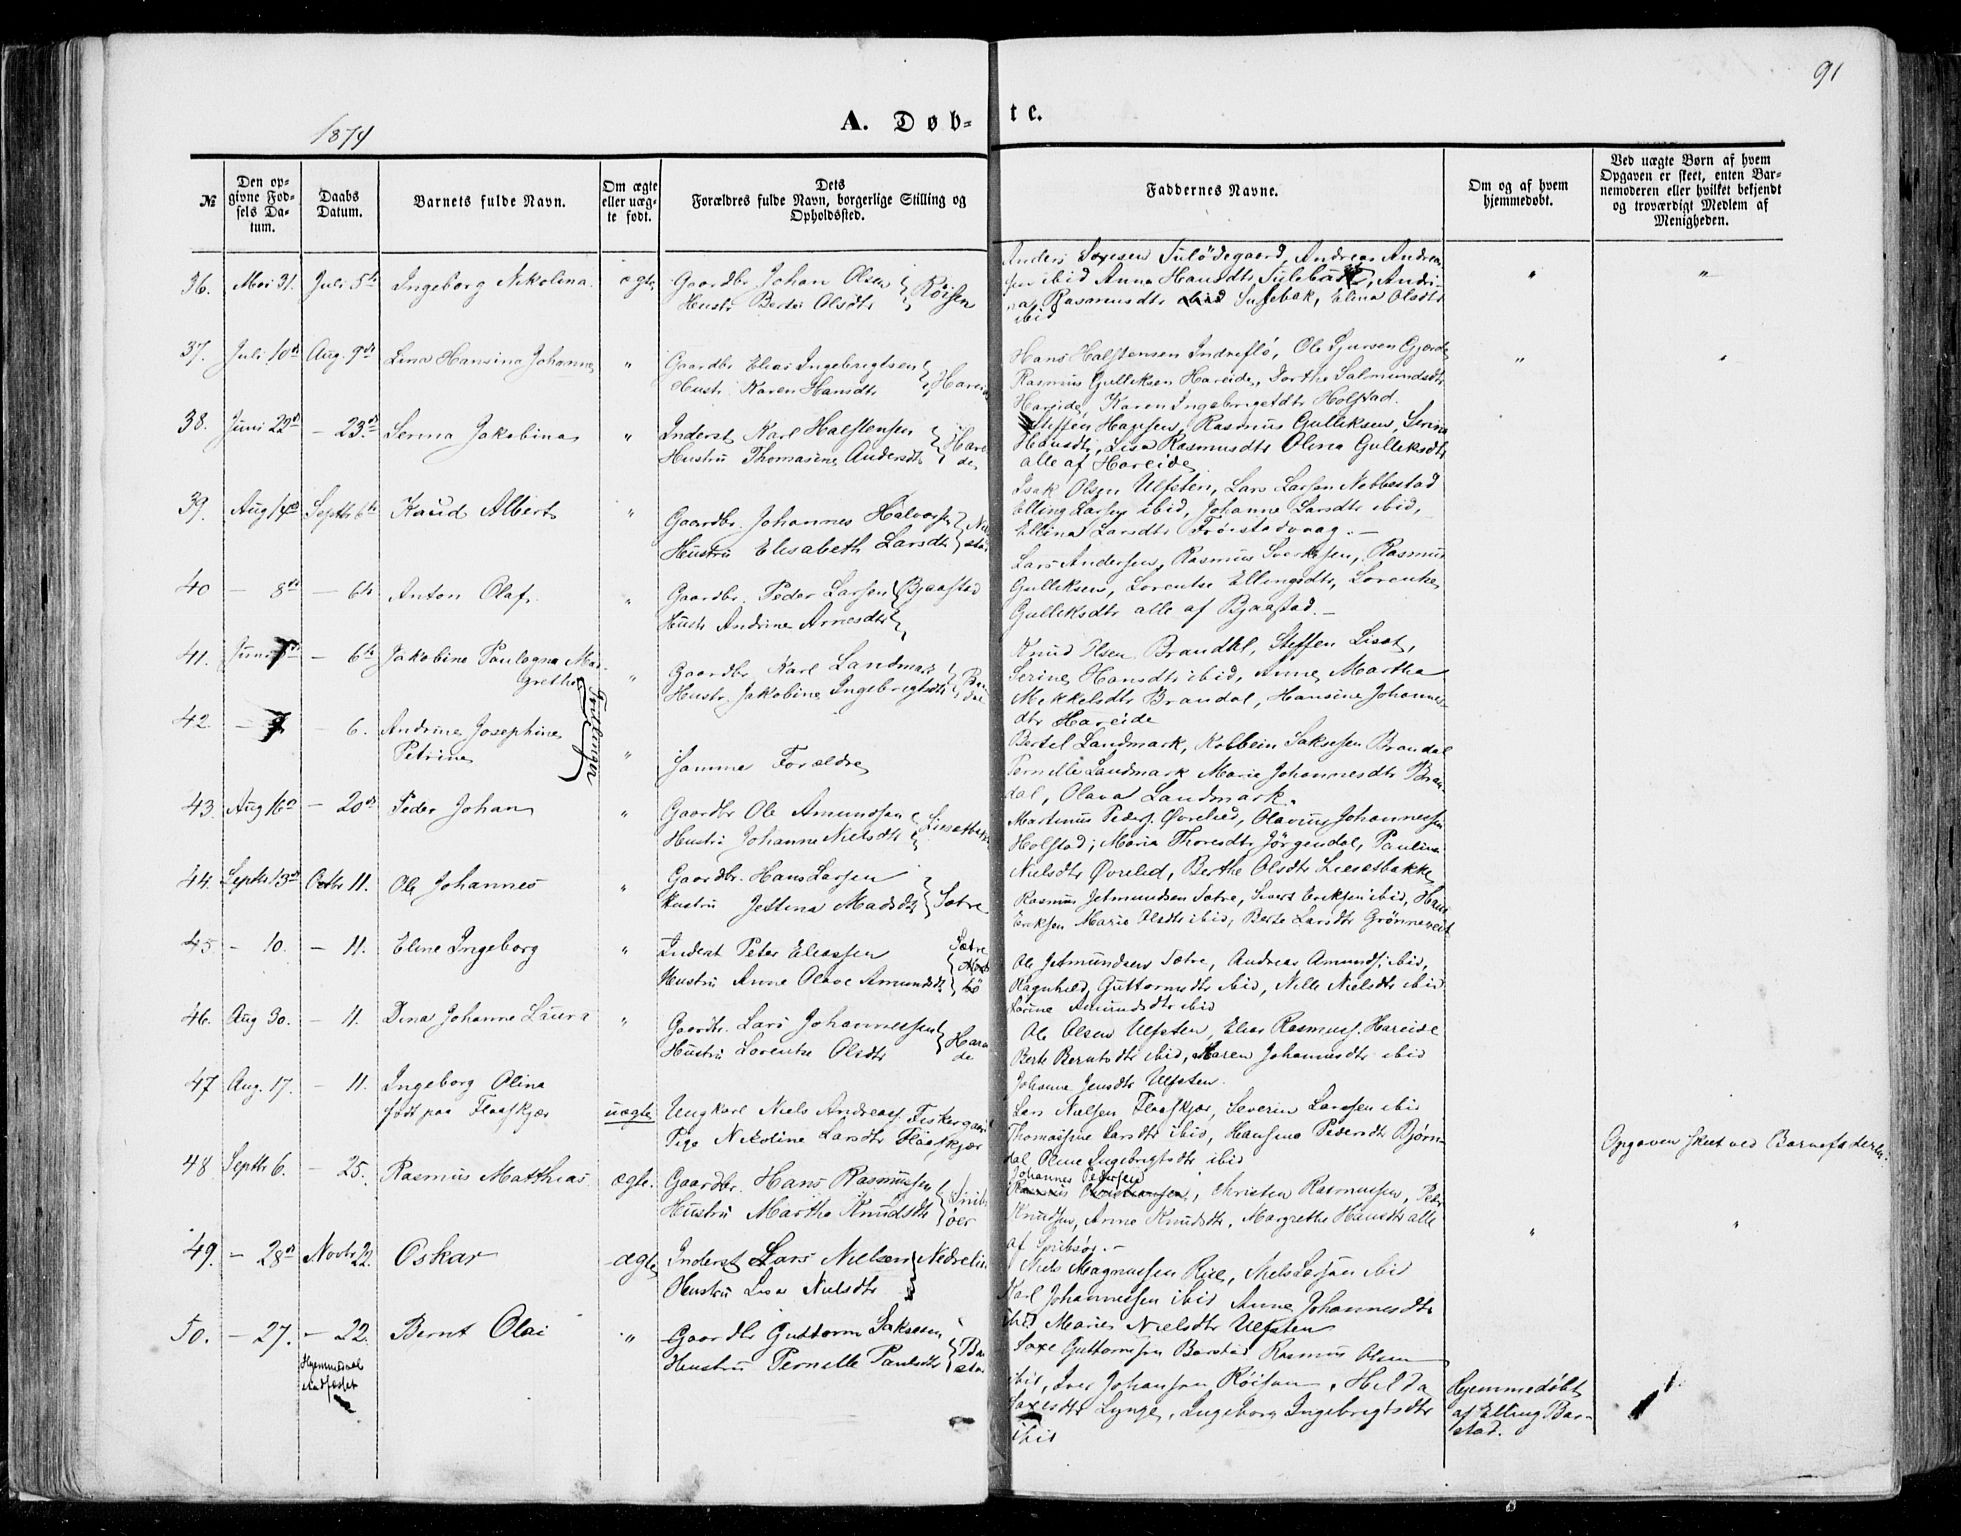 91
1874
A. Døb-te.
№
Den opgivne Fødsels Datum.
Daabs Datum.
Barnets fulde Navn.
Om ægte eller uægte født.
Dets Forældres fulde Navn, borgerlige Stilling og Opholdssted.
Faddernes Navne.
Om og af hvem hjemmedøbt.
Ved uægte Børn af hvem Opgaven er skeet, enten Barnemoderen eller hvilket bekjendt og troværdigt Medlem af Menigheden.
36. Mai 31. Juli 5te Ingeborg Nikolina ægte
Gaardbr Johan Olsen
Hustr Berte Olsdtr } Röisen
Anders Saxesen Andreas
ibid Anna Hansdtr
Rasmusdtr ibid Elina Olsdtr
ibid
37. Juli 10de Aug. 9de Lina Hansina Johanne "
Gaardbr Elias Ingebrigtsen
Hustr. Karen Hansdtr } Hareid
Hans Halstensen Indreflö, Ole Sjursen Gjerde
Rasmus Gulliksen Hareide, Dorthe Salmundsdtr
Hareide, Karen Ingebrigtdtr Holstad.
38. Juni 22de – 23de Serina Jakobina "
Inderst Karl Halstensen
Hustru Thomasine Andersdtr } Harei
de
Steffen Hansen, Rasmus Gulliksen, Serina
Hansdtr, Lisa Rasmusdtr Olina Gulliksdtr
alle af Hareide
39. Aug 14de Septbr 6te Knud Albert "
Gaardbr. Johannes Halvorsen
Hustru Elisabeth Larsdtr
Isak Olsen Ulfsten, Lars Larsen Nebbestad
Elling Larsen ibid, Johanne Larsdtr ibid,
Ellina Larsdtr Fröistadvaag. –
40 – 8de – 6te Anton Olaf. "
Gaardbr. Peder Larsen } Bjaastad
Hustr Andrine Arnesdtr
Lars Andersen, Rasmus Sverkesen, Rasmus
Gulliksen, Lorentse Ellingsdtr, Lorentse
Gulliksdtr alle af Bjaastad. –
41. Juni – 6te Jakobine Paulagna Mar-
grethe "
Tvillinger
Gaardbr Karl Landmark
Hustr. Jakobine Ingebrigtsdtr
Knud Olsen Brandal, Steffen Liset,
Serine Hansdtr ibid, Anne Martha
Mikkelsdtr Brandal, Hansine Johannes-
dtr Hareide
42. – 6. Andrine Josephine
Petrine "
Samme Forældre
Bertel Landmark, Kolbein Saksesen Brandal
Pernille Landmark Marie Johannesdtr Bran-
dal, Olava Landmark.
43. Aug 16de – 20de Peder Johan "
Gaardbr Ole Amundsen
Hustru Johanne Nielsdtr } Liesætbakk
Martinus Peders. Øvrelid, Olavius Johannessen
Holstad, Maria Thoresdtr Jörgendal, Paulina
Nielsdtr Øvrelid, Berthe Olsdtr Liesetbakke
44. Septbr 13de Octbr 11. Ole Johannes "
Gaardbr. Hans Larsen
Hustru Jettina Madsdtr } Sætre
Rasmus Jetmundsen Sætre, Sivert Eriksen ibid, Hans
Eriksen Marie Olsdtr ibid, Berte Larsdtr Grönnevet
45 – 10. – 11. Eline Ingeborg "
Inderst Peter Eliassen
Hustru Anne Olave Amundsdtr } Sætre
Ole Jetmundsen Sætre, Andreas Amunds. ibid,
Ragnhild Guttormsdtr ibid, Nille Nielsdtr ibid
Larine Amundsdtr ibid
46. Aug 30. – 11. Dina Johanne Laura "
Gaardbr. Lars Johannessen
Hustru Lorentse Olsdtr } Harei
de
Ole Olsen Ulfsten, Elias Rasmuss. Hareide
Berte Berntsdtr ibid, Karen Johannesdtr ibid
Johanne Jensdtr Ulfsten.
47 Aug. 17. – 11. Ingeborg Olina
født paa Flaaskjær uægte
Ungkarl Niels Andreas.
Pige Nikoline Larsdtr Flaaskjær
Lars Nielsen Flaaskjær, Severin Larsen ibid
Thomasine Larsdtr ibid, Hansine Pedersdtr Björn-
dal Oline Ingebrigtsdtr ibid
Opgaven skeet ved Barnefaderen.
48 Septbr 6. – 25. Rasmus Matthias ægte.
Gaardbr. Hans Rasmussen
Hustru Marthe Knudsdtr
Johannes Pedersen
Christen Rasmussen, Peder
Knudsen, Anne Knudsdtr, Margrethe Hansdtr alle
af
49. – 28de Novbr 22. Oskar ægte
Inderst Lars Nielsen
Hustru Lisa Nielsdtr
Niels Magnussen Rise, Niels Larsen ibid
Karl Johannessen ibid Anne Johannesdtr
ibid Marie Nielsdtr Ulfsten
50. – 27. – 22. Bernt Olai "
Hjemmedaab
stadfæstet
Gaardbr Guttorm Saksesen
Hustru Pernille Paulsdtr } Ba
stad
Saxe Guttormsen Barstad Rasmus Olsen
ibid, Iver Johansen Röisen, Hilda
Saxesdtr Lynge, Ingeborg Ingebrigtsdtr
ibid
Hjemmedöbt
af Elling Bar-
stad.